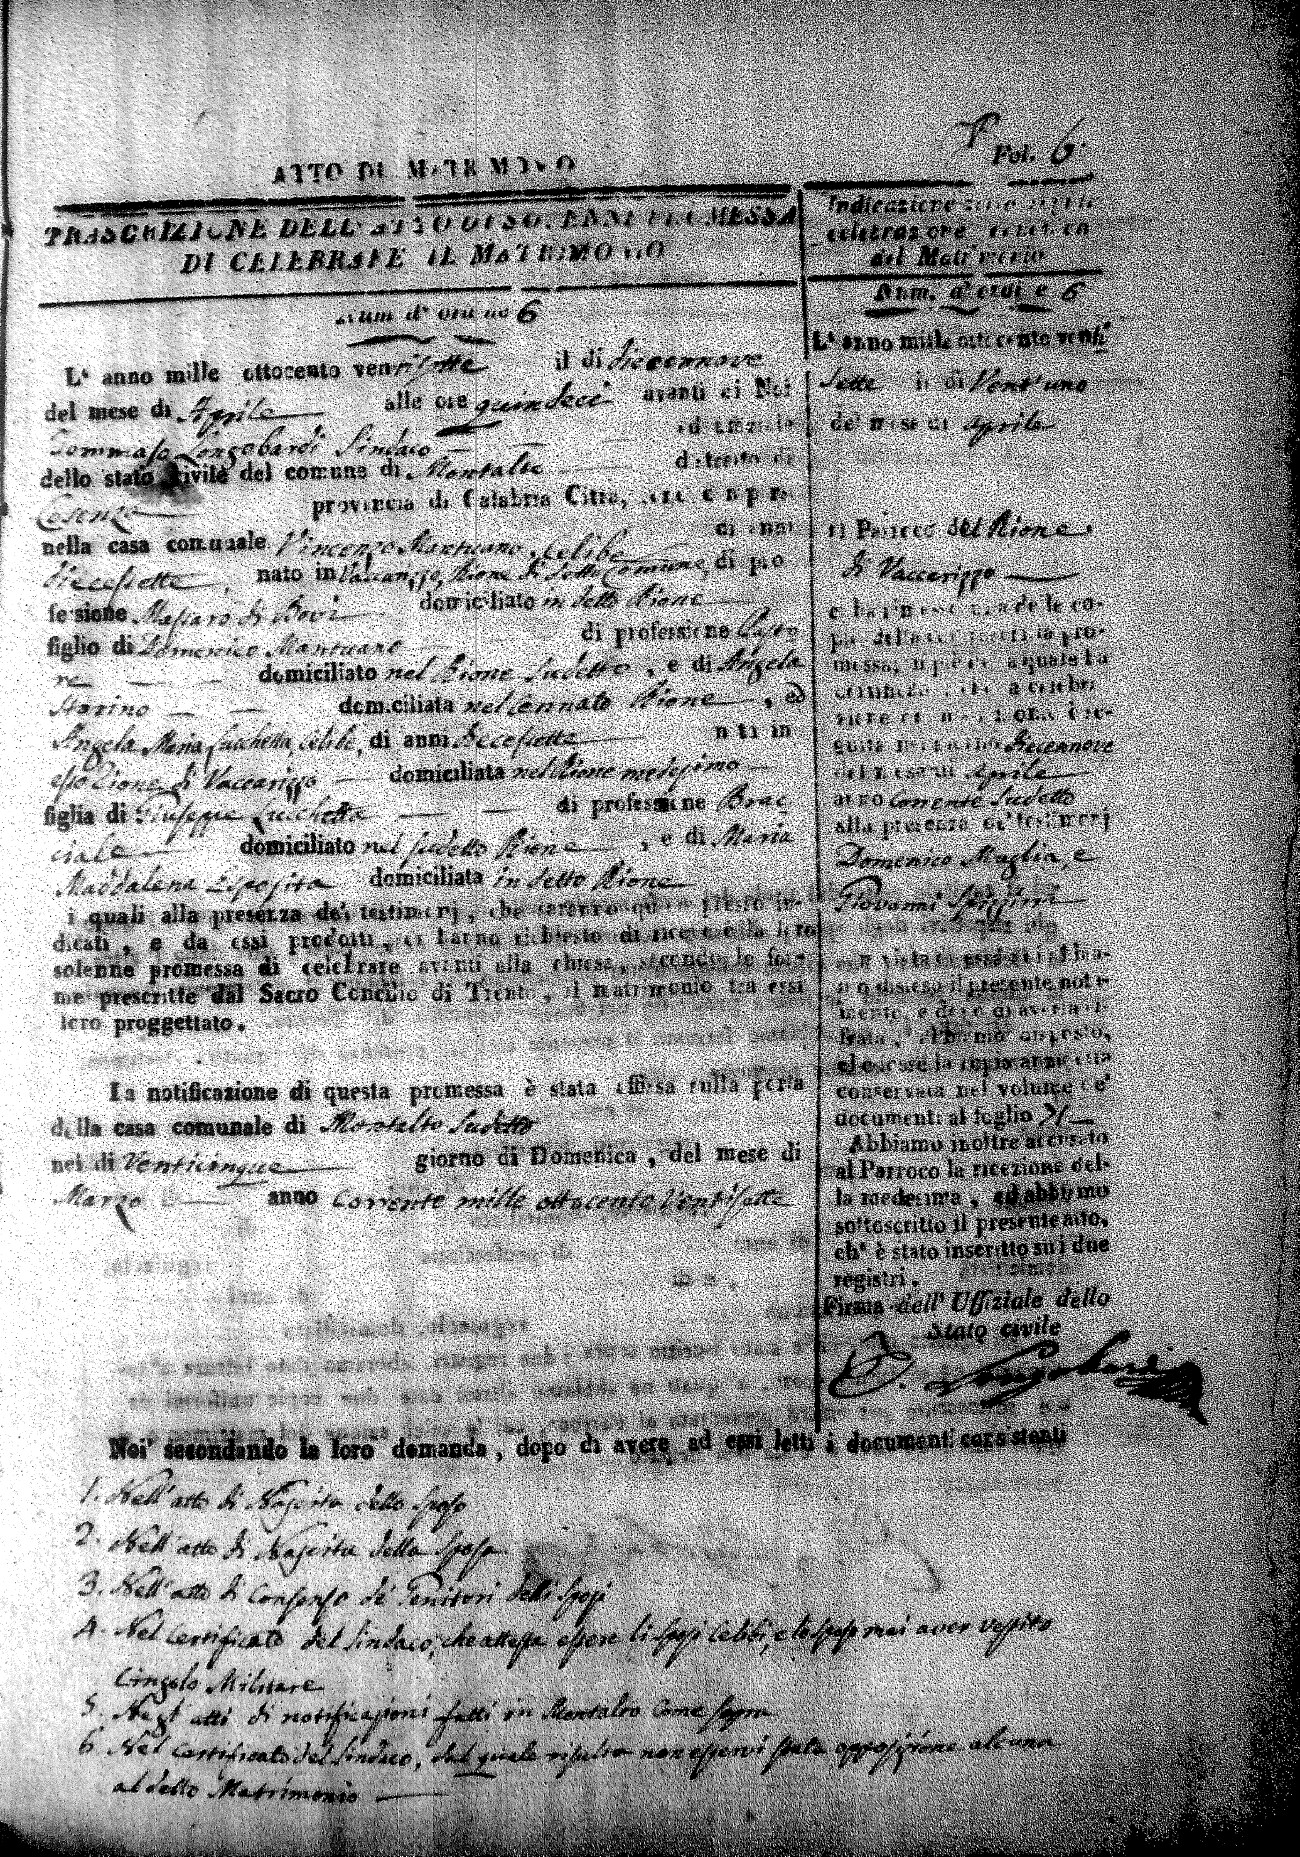 Fol. 6.
ATTO DI MATRIMONIO
TRASCRIZIONE DELL' ATTO DI SOLENNE PROMESSA
DI CELEBRARE IL MATRIMONIO
Num. d' ordine 6
L' anno mille ottocento ventisette il dì diecennove
del mese di Aprile alle ore quindeci avanti di Noi
Tommaso Longobardi Sindaco ed
dello stato civile del comune di Montalto distretto di
Cosenza provincia di Calabria Citra, sono comparsi
nella casa comunale Vincenzo Mantuano, Celibe di anni
diecesette, nato in Vaccarizzo, Rione di detto Comune, di pro
fessione Massaro di Bovi domiciliato in detto Rione
figlio di Domenico Mantuano di professione
domiciliato nel Rione sudetto, e di Angela
Starino domiciliata nel cennato Rione, ed
Angela Maria Lucchetta celibe, di anni diecesette nata in
esso Rione di Vaccarizzo domiciliata nel Rione medesimo
figlia di Giuseppe Lucchetta di professione Brac
ciale domiciliato nel sudetto Rione, e di Maria
Maddalena Esposita domiciliata in detto Rione
i quali alla presenza de' testimonj, che saranno qui appresso in-
dicati, e da essi prodotti, ci hanno richiesto di ricevere la loro
solenne promessa di celebrare avanti alla chiesa, secondo le for-
me prescritte dal Sacro Concilio di Trento, il matrimonio tra essi
loro proggettato.
La notificazione di questa promessa è stata affissa sulla porta
della casa comunale di Montalto sudetto
nel dì Venticinque giorno di Domenica, del mese di
Marzo anno corrente mille ottocento ventisette
Indicazione della seguita
celebrazione canonica
del Matrimonio
Num. d' ordine 6
L' anno mille ottocento venti
sette il dì Vent'uno
del mese di Aprile
il Parroco del Rione
di Vaccarizzo
e ha rimesso una delle co-
pie della promessa, a piè della quale ha
certificato, che la celebra-
zione del matrimonio è se-
guita nel giorno diecennove
del mese di Aprile
anno corrente sudetto
alla presenza de' testimonj
Domenico Muglia e
Giovanni
In vista di essa noi abbia-
mo disteso il presente notamento, e dopo di averla ci-
frata, abbiamo disposto,
che fosse la copia anzidetta
conservata nel volume de'
documenti al foglio 31
Abbiamo inoltre accusato
al Parroco la ricezione del-
la medesima, ed abbiamo
sottoscritto il presente atto,
ch' è stato inscritto su i due
registri.
Firma dell' Uffiziale dello
Stato civile
T. Longobardi
Noi secondando la loro domanda, dopo di avere ad essi letti i documenti consistenti
1. Nell' atto di Nascita dello sposo
2. Nell' atto di Nascita della sposa
3. Nell' atto di consenso de' Genitori delli sposi
4. Nel certificato del sindaco, che attesta essere li sposi celibi, e lo sposo mai aver vestito
cingolo Militare
5. Negl' atti di notificazioni fatti in Montalto come sopra
6. Nel certificato del sindaco, dal quale risulta non esservi stata opposizione alcuna
al detto Matrimonio